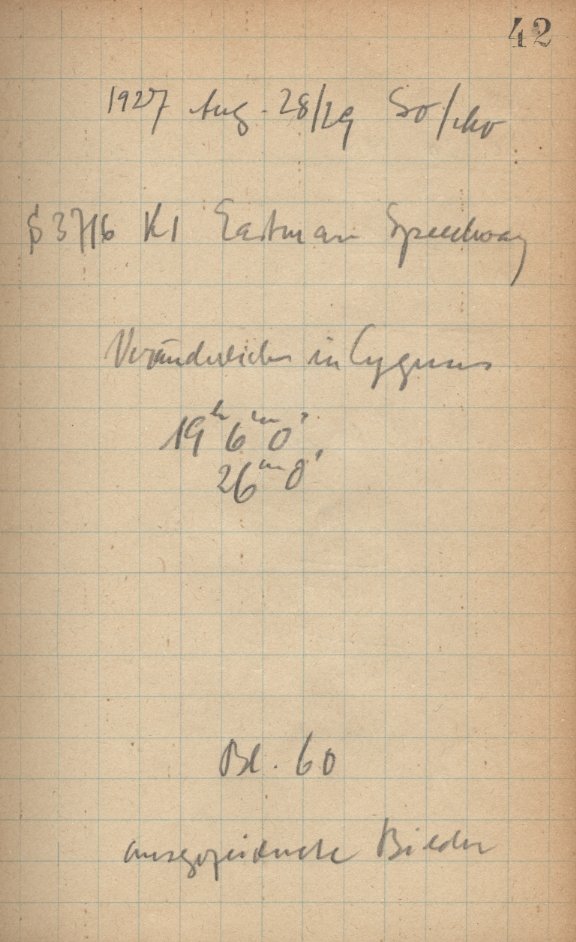 42
1927 Aug. 28/29 So/Mo
S 3716 K1 Eastman Speedway
Veränderlicher in Cygnus
19ʰ 6ᵐ 0ˢ
26ᵐ 0ˢ
Bl. 60
ausgezeichnete Bilder